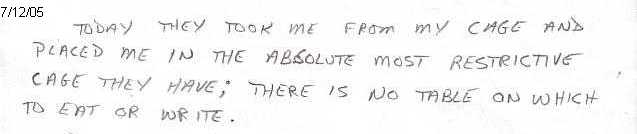 7/12/05
TODAY THEY TOOK ME FROM MY CAGE AND
PLACED ME IN THE ABSOLUTE MOST RESTRICTIVE
CAGE THEY HAVE; THERE IS NO TABLE ON WHICH
TO EAT OR WRITE.